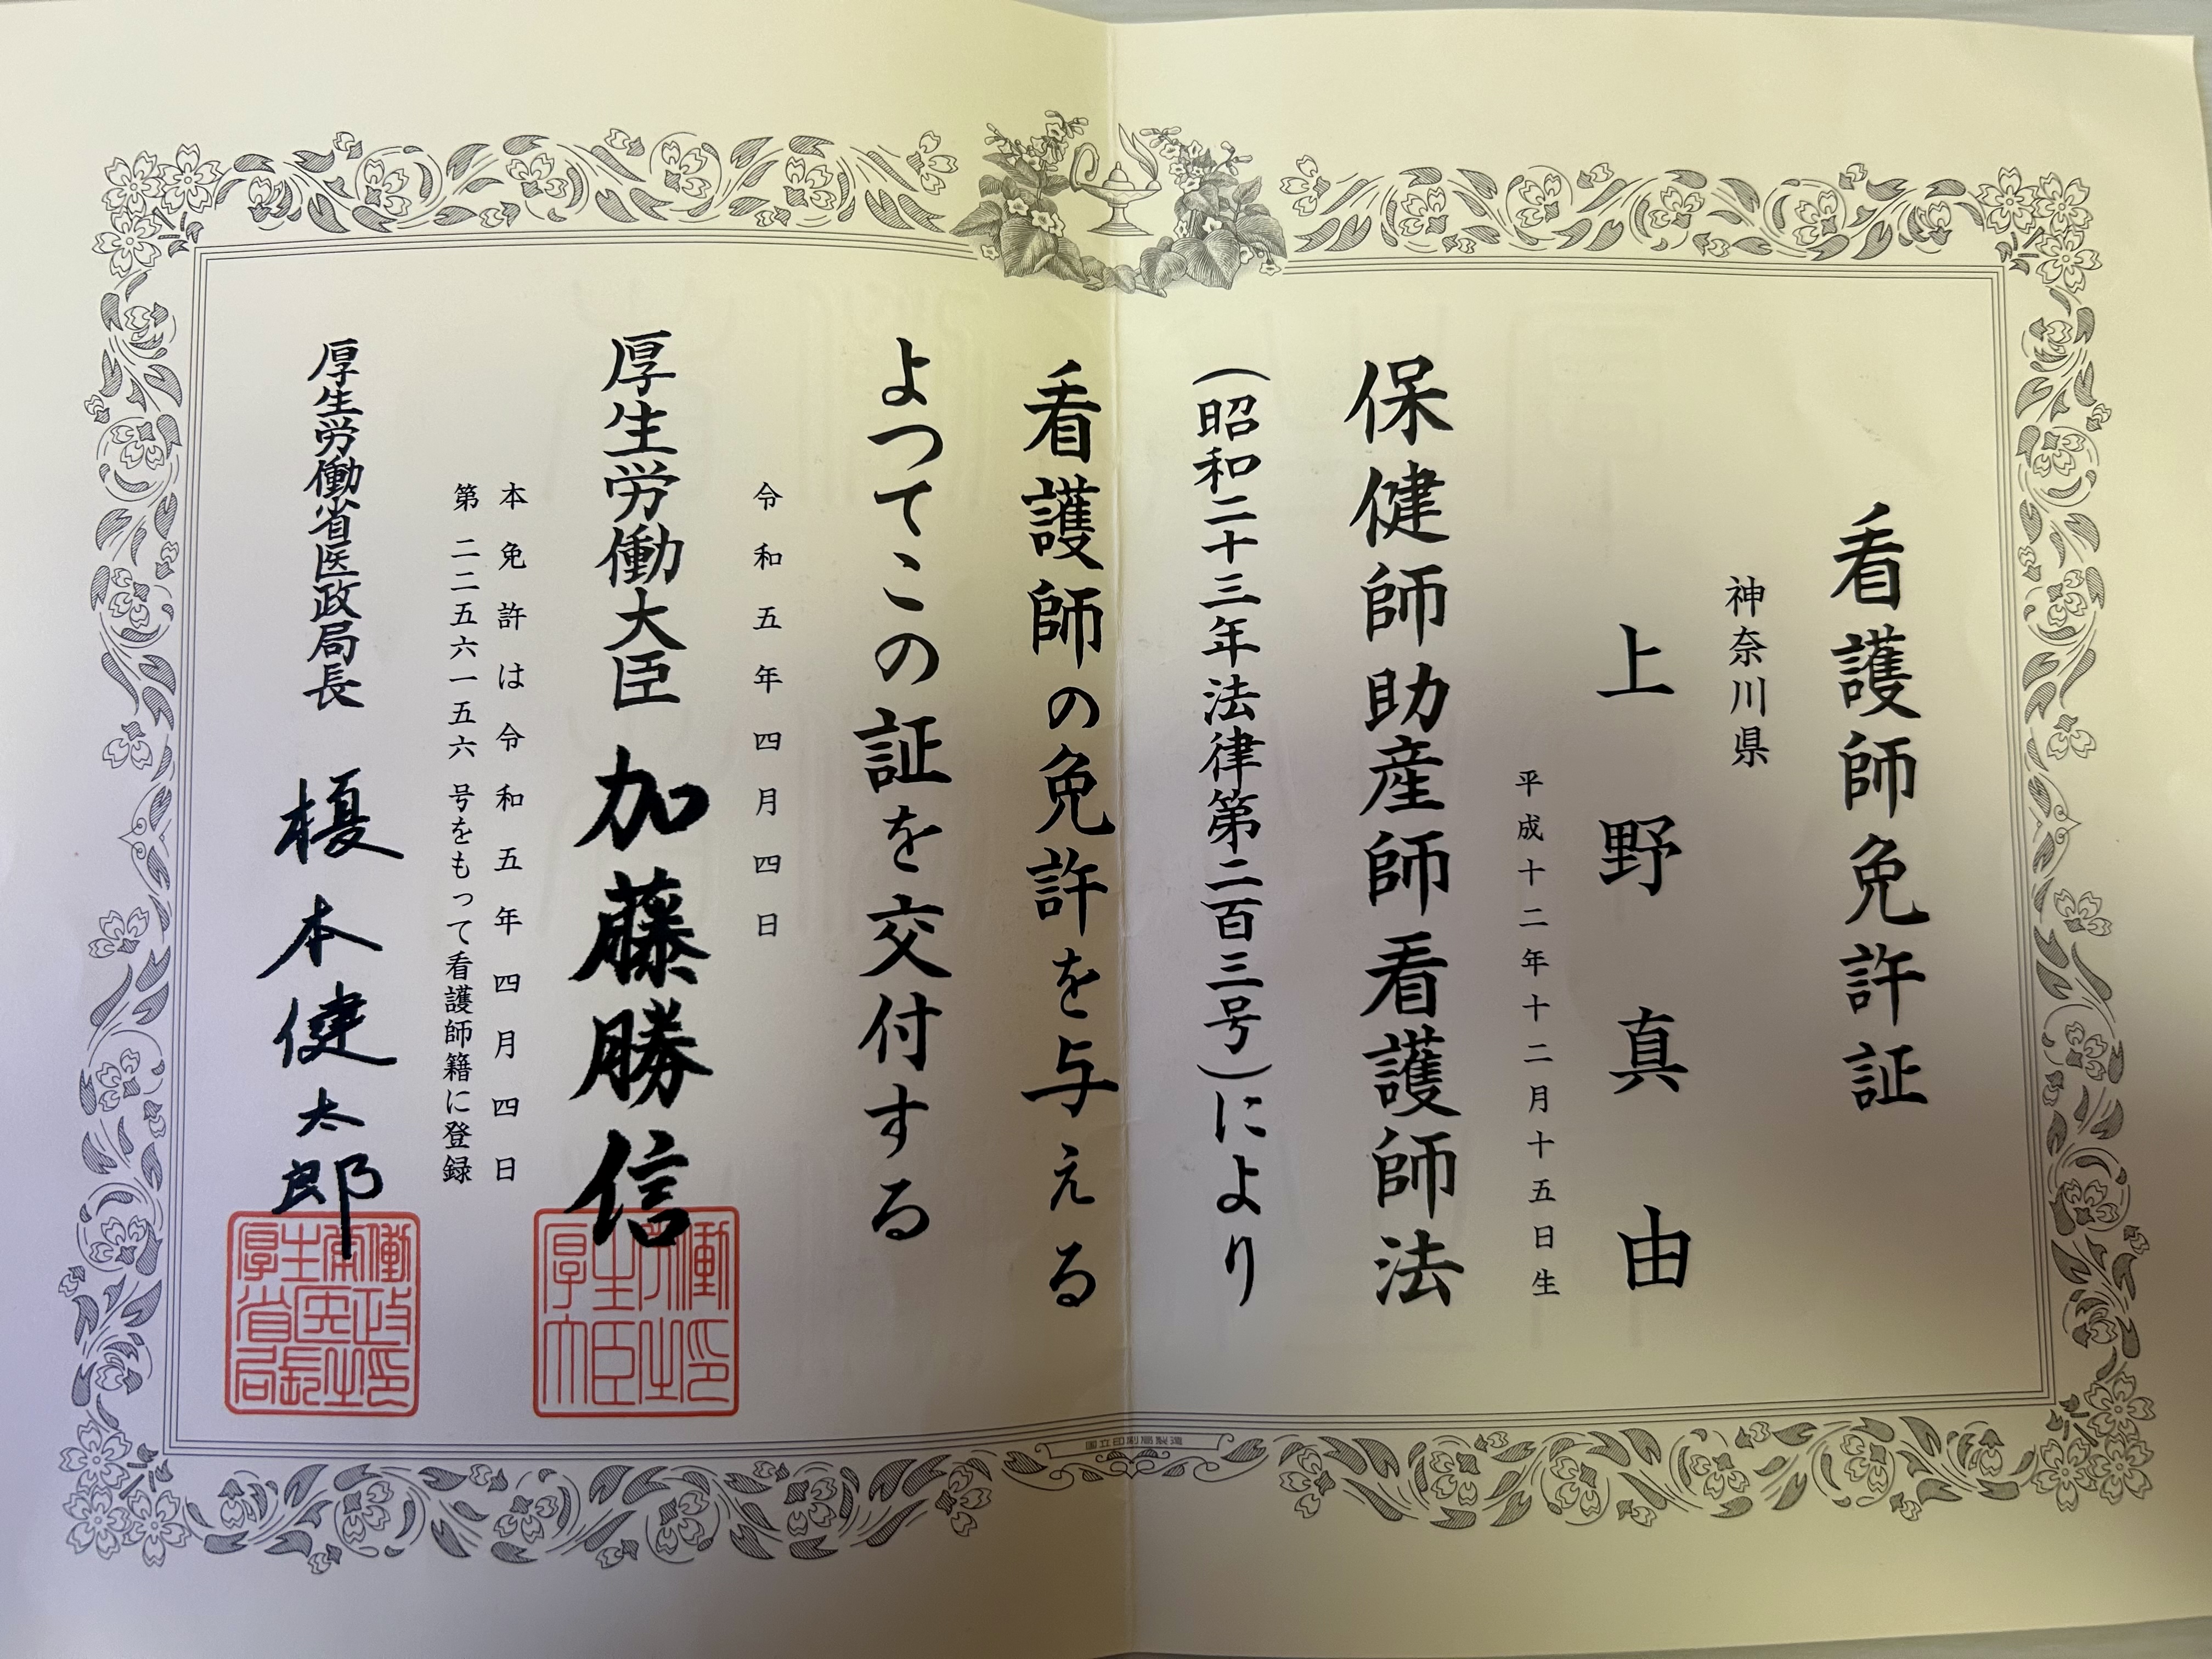 看護師免許証
神奈川県
上野真由
平成十二年十二月十五日生
保健師助産師看護師法
(昭和二十三年法律第二百三号)により
看護師の免許を与える
よつてこの証を交付する
令和五年四月四日
厚生労働大臣 加藤勝信
本免許は令和五年四月四日
第二二五六一五六号をもって看護師籍に登録
厚生労働省医政局長 榎本健太郎
国立印刷局製造